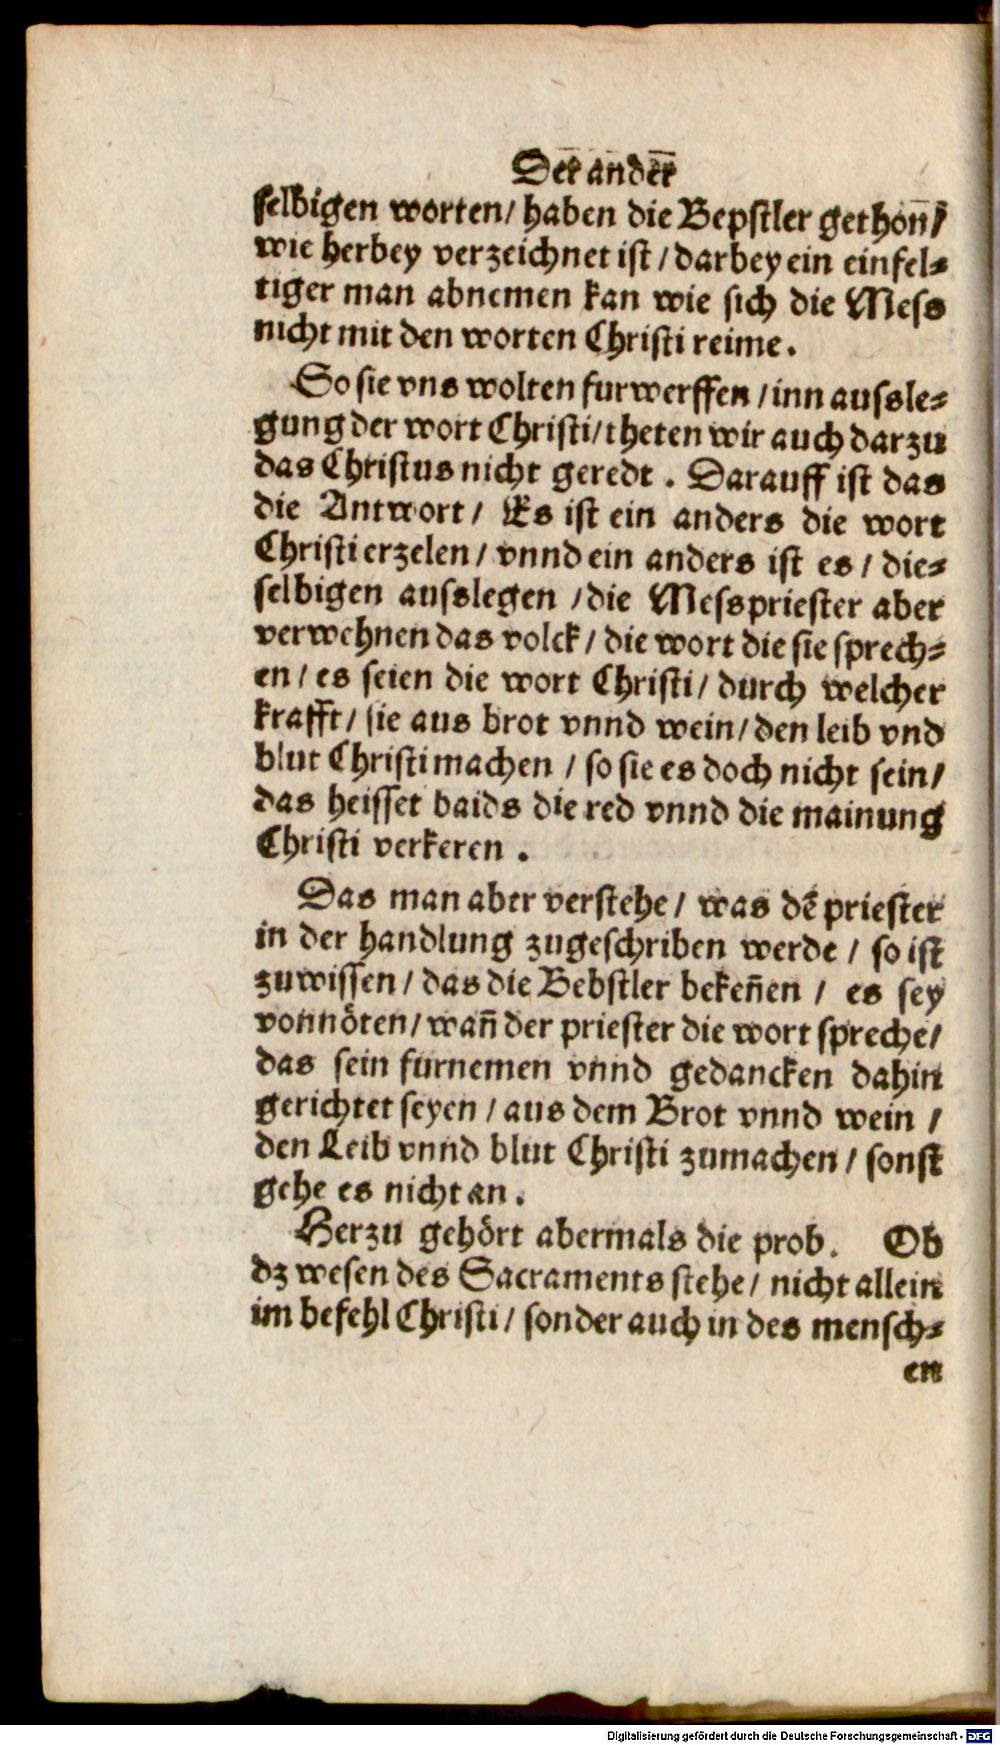 Der ander
selbigen worten/ haben die Bepstler gethon/
wie herbey verzeichnet ist/ darbey ein einfel⸗
tiger man abnemen kan wie sich die Mess
nicht mit den worten Christi reime.
So sie vns wolten furwerffen/ inn aussle⸗
gung der wort Christi/ theten wir auch darzu
das Christus nicht geredt. Darauff ist das
die Antwort/ Es ist ein anders die wort
Christi erzelen/ vnnd ein anders ist es/ die⸗
selbigen ausslegen/ die Messpriester aber
verwehnen das volck/ die wort die sie sprech⸗
en/ es seien die wort Christi/ durch welcher
krafft/ sie aus brot vnnd wein/ den leib vnd
blut Christi machen/ so sie es doch nicht sein/
das heisset baids die red vnnd die mainung
Christi verkeren.
Das man aber verstehe/ was dē priester
in der handlung zugeschriben werde/ so ist
zuwissen/ das die Bebstler bekeñen/ es sey
vonnöten/ wañ der priester die wort spreche/
das sein furnemen vnnd gedancken dahin
gerichtet seyen/ aus dem Brot vnnd wein/
den Leib vnnd blut Christi zumachen/ sonst
gehe es nicht an.
Herzu gehört abermals die prob. Ob
dz wesen des Sacraments stehe/ nicht allein
im befehl Christi/ sonder auch in des mensch⸗
en
Digitalisierung gefördert durch die Deutsche Forschungsgemeinschaft - DFG